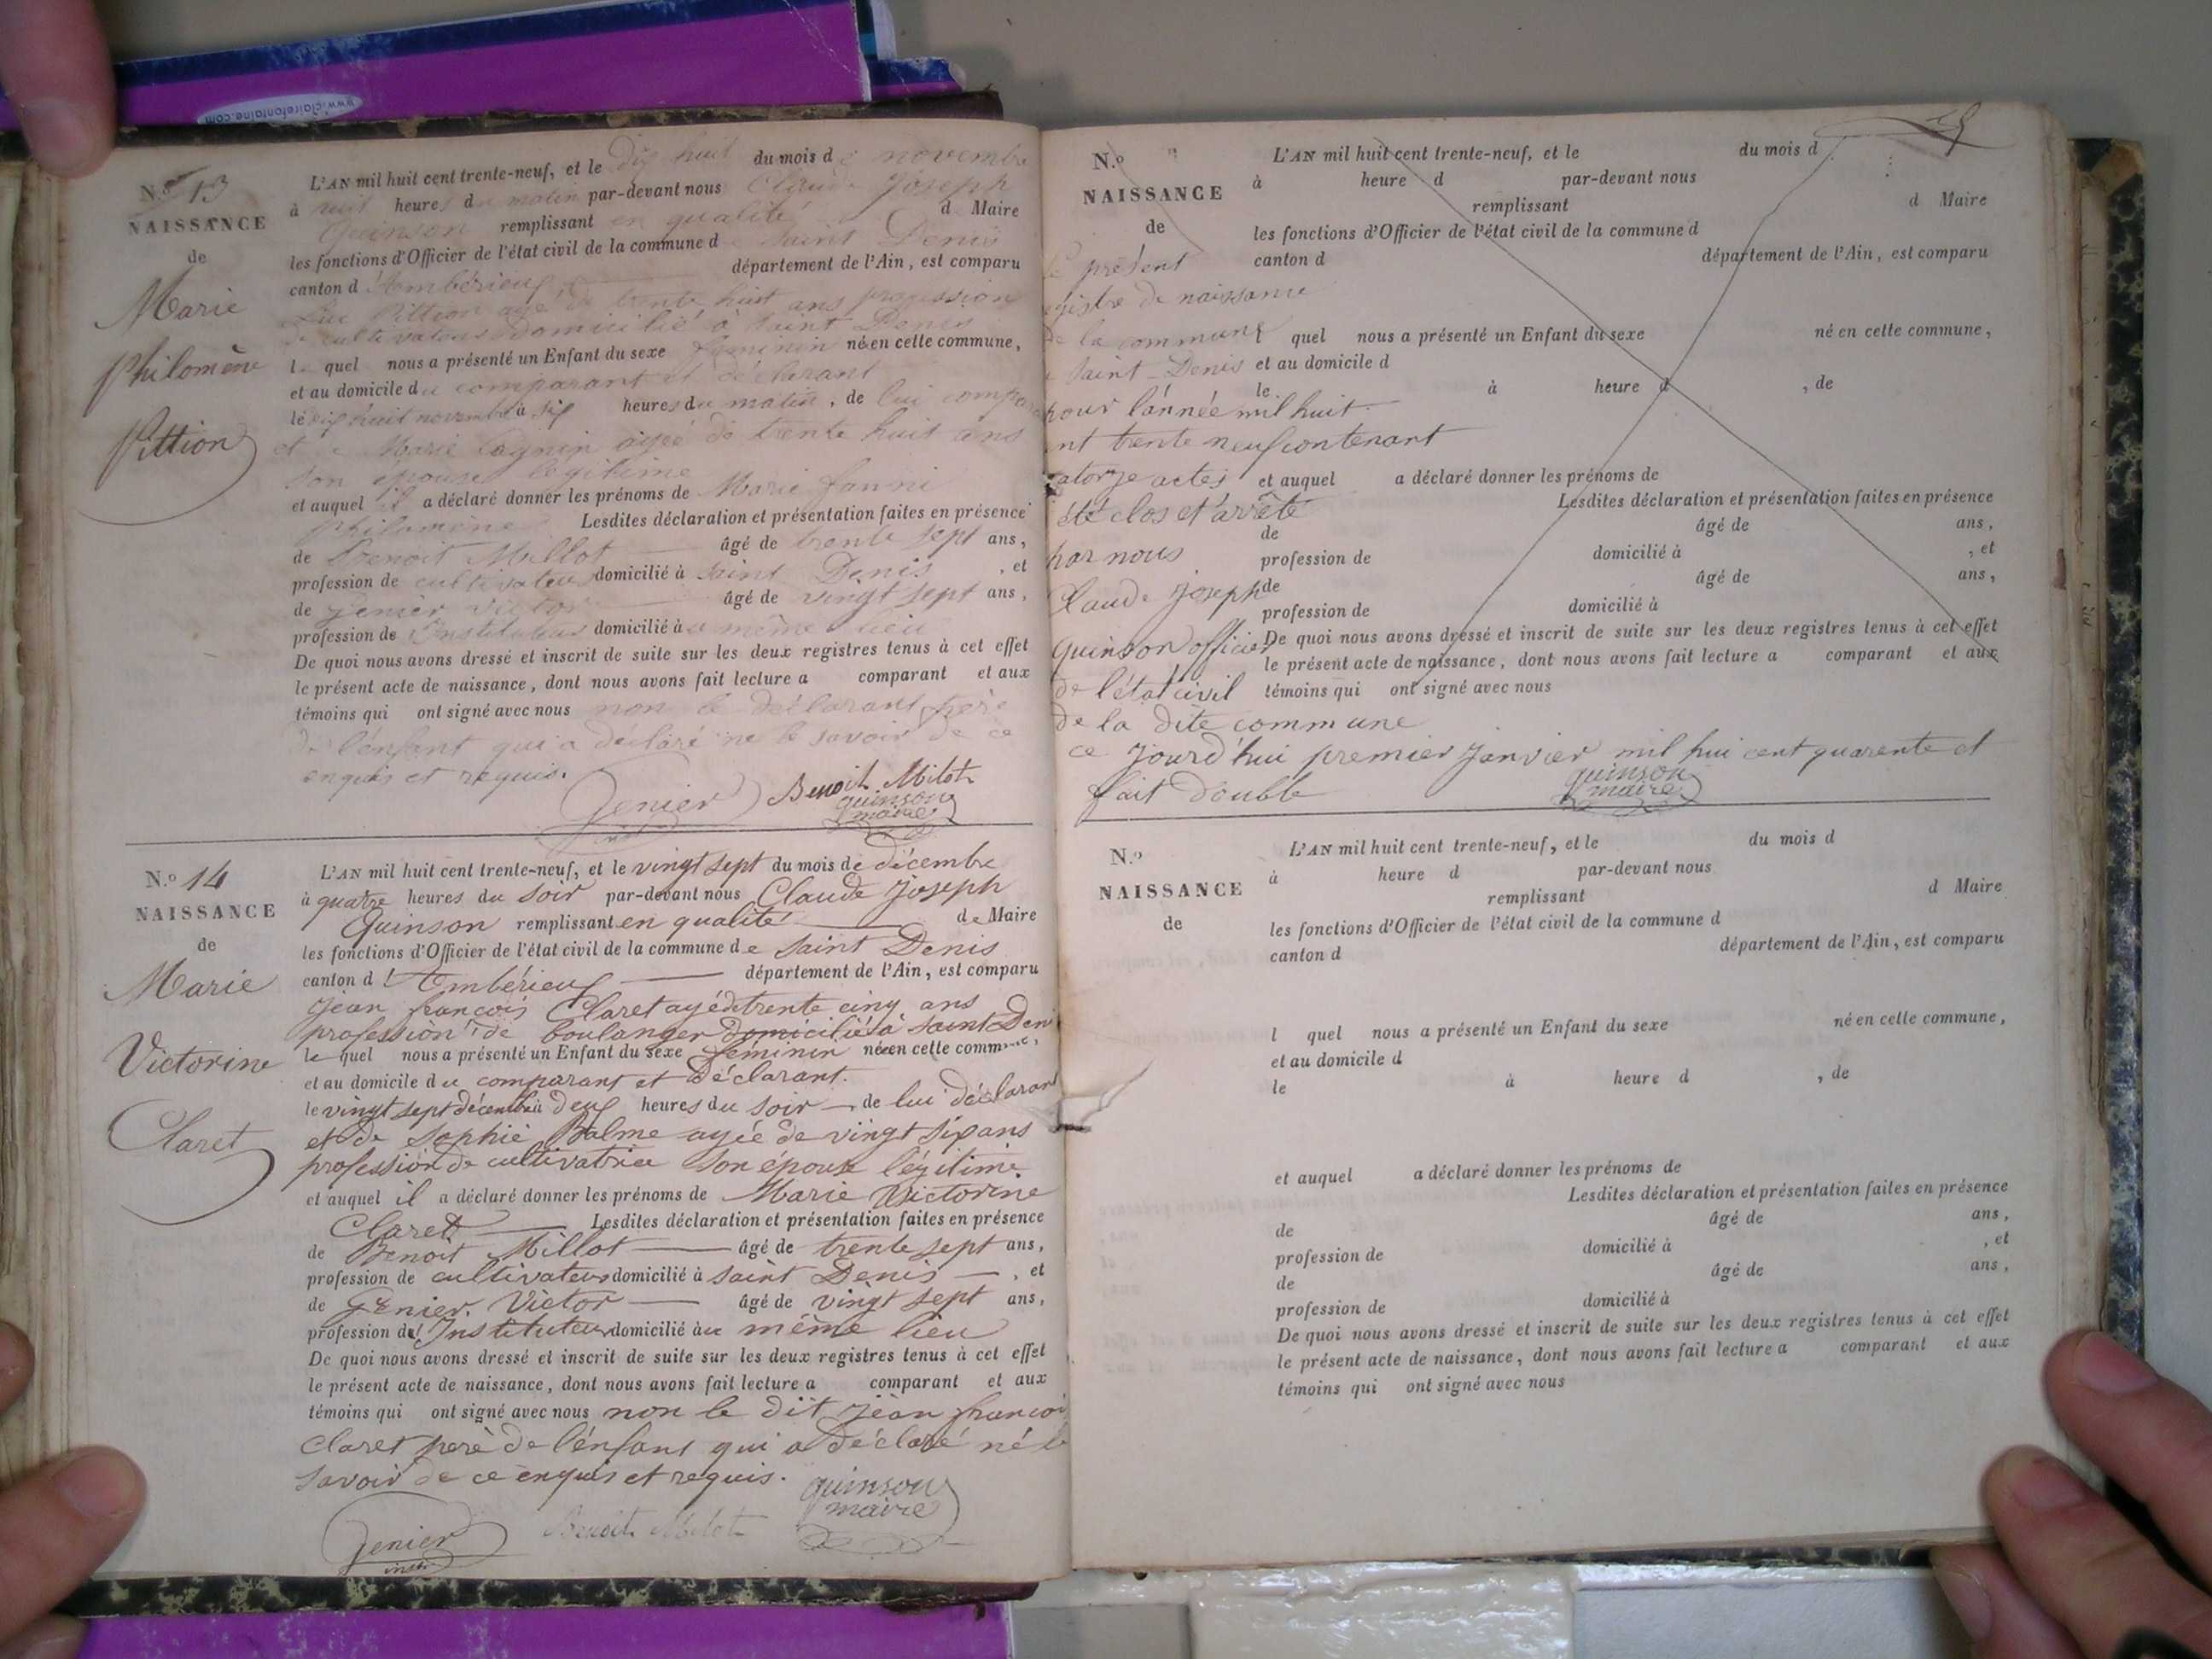 www.clairefontaine.com
N.º 13
NAISSANCE
de
Marie
Philomène
Pittion
L'AN mil huit cent trente-neuf, et le dix huit du mois de novembre
à huit heures du matin par-devant nous Claude Joseph
Quinson remplissant en qualité d Maire
les fonctions d'Officier de l'état civil de la commune de Saint Denis
canton d'Ambérieux département de l'Ain, est comparu
Luc Pittion agé de trente huit ans profession
de cultivateur domicilié à Saint Denis
l quel nous a présenté un Enfant du sexe féminin né en cette commune,
et au domicile du comparant et déclarant
le dix huit novembre à six heures du matin, de lui comparant
et de Marie Cagnin agée de trente huit ans
son épouse légitime
et auquel il a déclaré donner les prénoms de Marie fanni
Philomène Lesdites déclaration et présentation faites en présence
de Benoit Millot âgé de trente sept ans,
profession de cultivateur domicilié à Saint Denis, et
de Jenier Victor âgé de vingt sept ans,
profession de Instituteur domicilié au même lieu
De quoi nous avons dressé et inscrit de suite sur les deux registres tenus à cet effet
le présent acte de naissance, dont nous avons fait lecture a comparant et aux
témoins qui ont signé avec nous non le déclarant père
de l'énfant qui a déclaré ne le savoir de ce
enquis et requis.
Jenier Benoit Milot
quinson
maire
N.º 14
NAISSANCE
de
Marie
Victorine
Claret
L'AN mil huit cent trente-neuf, et le vingt sept du mois de décembre
à quatre heures du soir par-devant nous Claude Joseph
Quinson remplissant en qualité de Maire
les fonctions d'Officier de l'état civil de la commune de Saint Denis
canton d'Ambérieux département de l'Ain, est comparu
Jean françois Claret agé de trente cinq ans
profession de boulanger domicilié à Saint Deni
le quel nous a présenté un Enfant du sexe féminin née en cette commune,
et au domicile du comparant et déclarant.
le vingt sept décembre à deux heures du soir de lui déclarant
et de Sophie Balme agée de vingt six ans
profession de cultivatrice son épouse légitime
et auquel il a déclaré donner les prénoms de Marie Victorine
Claret Lesdites déclaration et présentation faites en présence
de Benoit Millot âgé de trente sept ans,
profession de cultivateur domicilié à Saint Denis, et
de Génier Victor âgé de vingt sept ans,
profession d'Instituteur domicilié au même lieu
De quoi nous avons dressé et inscrit de suite sur les deux registres tenus à cet effet
le présent acte de naissance, dont nous avons fait lecture a comparant et aux
témoins qui ont signé avec nous non le dit jean françoi
Claret père de l'énfant qui a déclaré né le
savoir de ce enquis et requis.
quinson
maire
Jenier Benoit Milot
instr
N.º
NAISSANCE
de
L'AN mil huit cent trente-neuf, et le du mois d
à heure d par-devant nous
remplissant d Maire
les fonctions d'Officier de l'état civil de la commune d
canton d département de l'Ain, est comparu
l quel nous a présenté un Enfant du sexe né en cette commune,
et au domicile d
le à heure d, de
et auquel a déclaré donner les prénoms de
Lesdites déclaration et présentation faites en présence
de âgé de ans,
profession de domicilié à, et
de âgé de ans,
profession de domicilié à
De quoi nous avons dressé et inscrit de suite sur les deux registres tenus à cet effet
le présent acte de naissance, dont nous avons fait lecture a comparant et aux
témoins qui ont signé avec nous
présent
egistre de naissance
de la commune
Saint-Denis
pour l'année mil huit
nt trente neuf contenant
atorze actes
été clos et arrêté
par nous
Claude Joseph
quinson officier
de l'état civil
de la dite commune
ce jourd'hui premier Janvier mil hui cent quarente et
fait double
quinson
maire
N.º
NAISSANCE
de
L'AN mil huit cent trente-neuf, et le du mois d
à heure d par-devant nous
remplissant d Maire
les fonctions d'Officier de l'état civil de la commune d
canton d département de l'Ain, est comparu
l quel nous a présenté un Enfant du sexe né en cette commune,
et au domicile d
le à heure d, de
et auquel a déclaré donner les prénoms de
Lesdites déclaration et présentation faites en présence
de âgé de ans,
profession de domicilié à, et
de âgé de ans,
profession de domicilié à
De quoi nous avons dressé et inscrit de suite sur les deux registres tenus à cet effet
le présent acte de naissance, dont nous avons fait lecture a comparant et aux
témoins qui ont signé avec nous